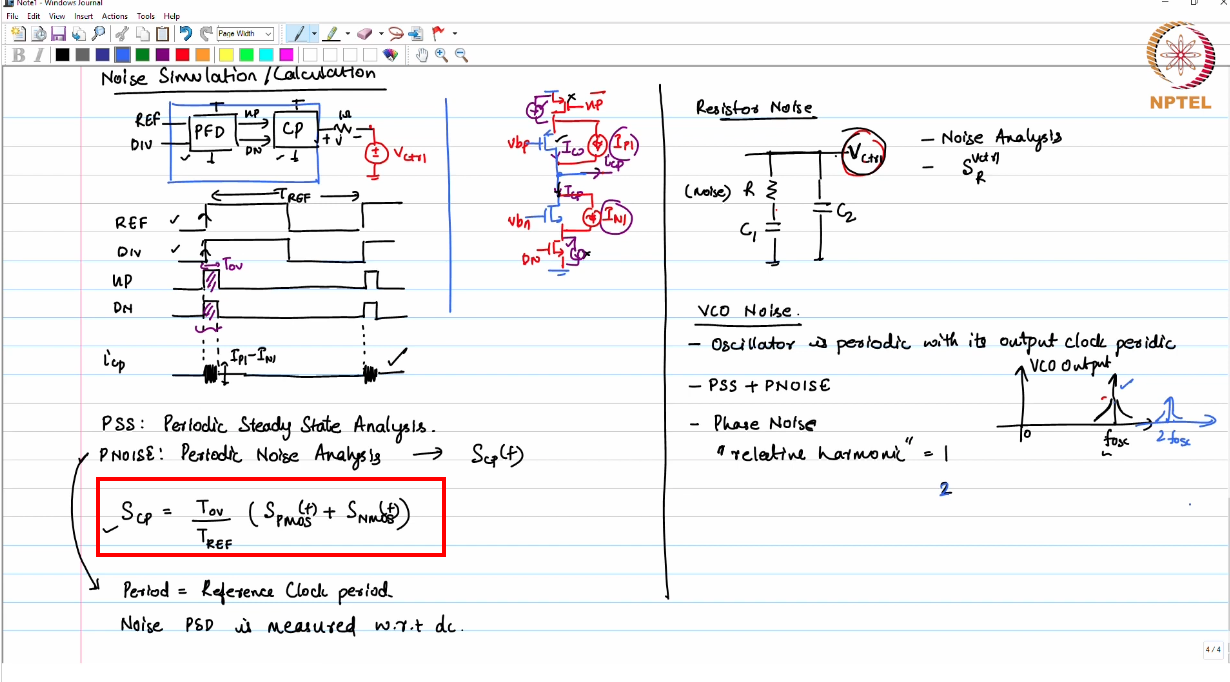 Note1 - Windows Journal
File Edit View Insert Actions Tools Help
Page Width
B I
NPTEL
Noise Simulation/Calculation
REF
DIV
PFD
UP
DN
CP
1Ω
+ V -
Vctrl
TREF
REF
DIV
Tov
UP
DN
icp
IP1-IN1
UP
vbp
Icp
IP1
icp
Icp
vbn
IN1
DN
PSS: Periodic Steady State Analysis.
PNOISE: Periodic Noise Analysis → Scp(f)
SCP = Tov/TREF (SPMOS(f) + SNMOS(f))
Period = Reference Clock period
Noise PSD is measured w.r.t dc.
Resistor Noise
(Noise) R
C1
C2
Vctrl
- Noise Analysis
- SR^Vctrl
VCO Noise.
- Oscillator is periodic with its output clock peridic
- PSS + PNOISE
- Phase Noise
"relative harmonic" = 1
2
VCO Output
0
fosc
2fosc
4 / 4